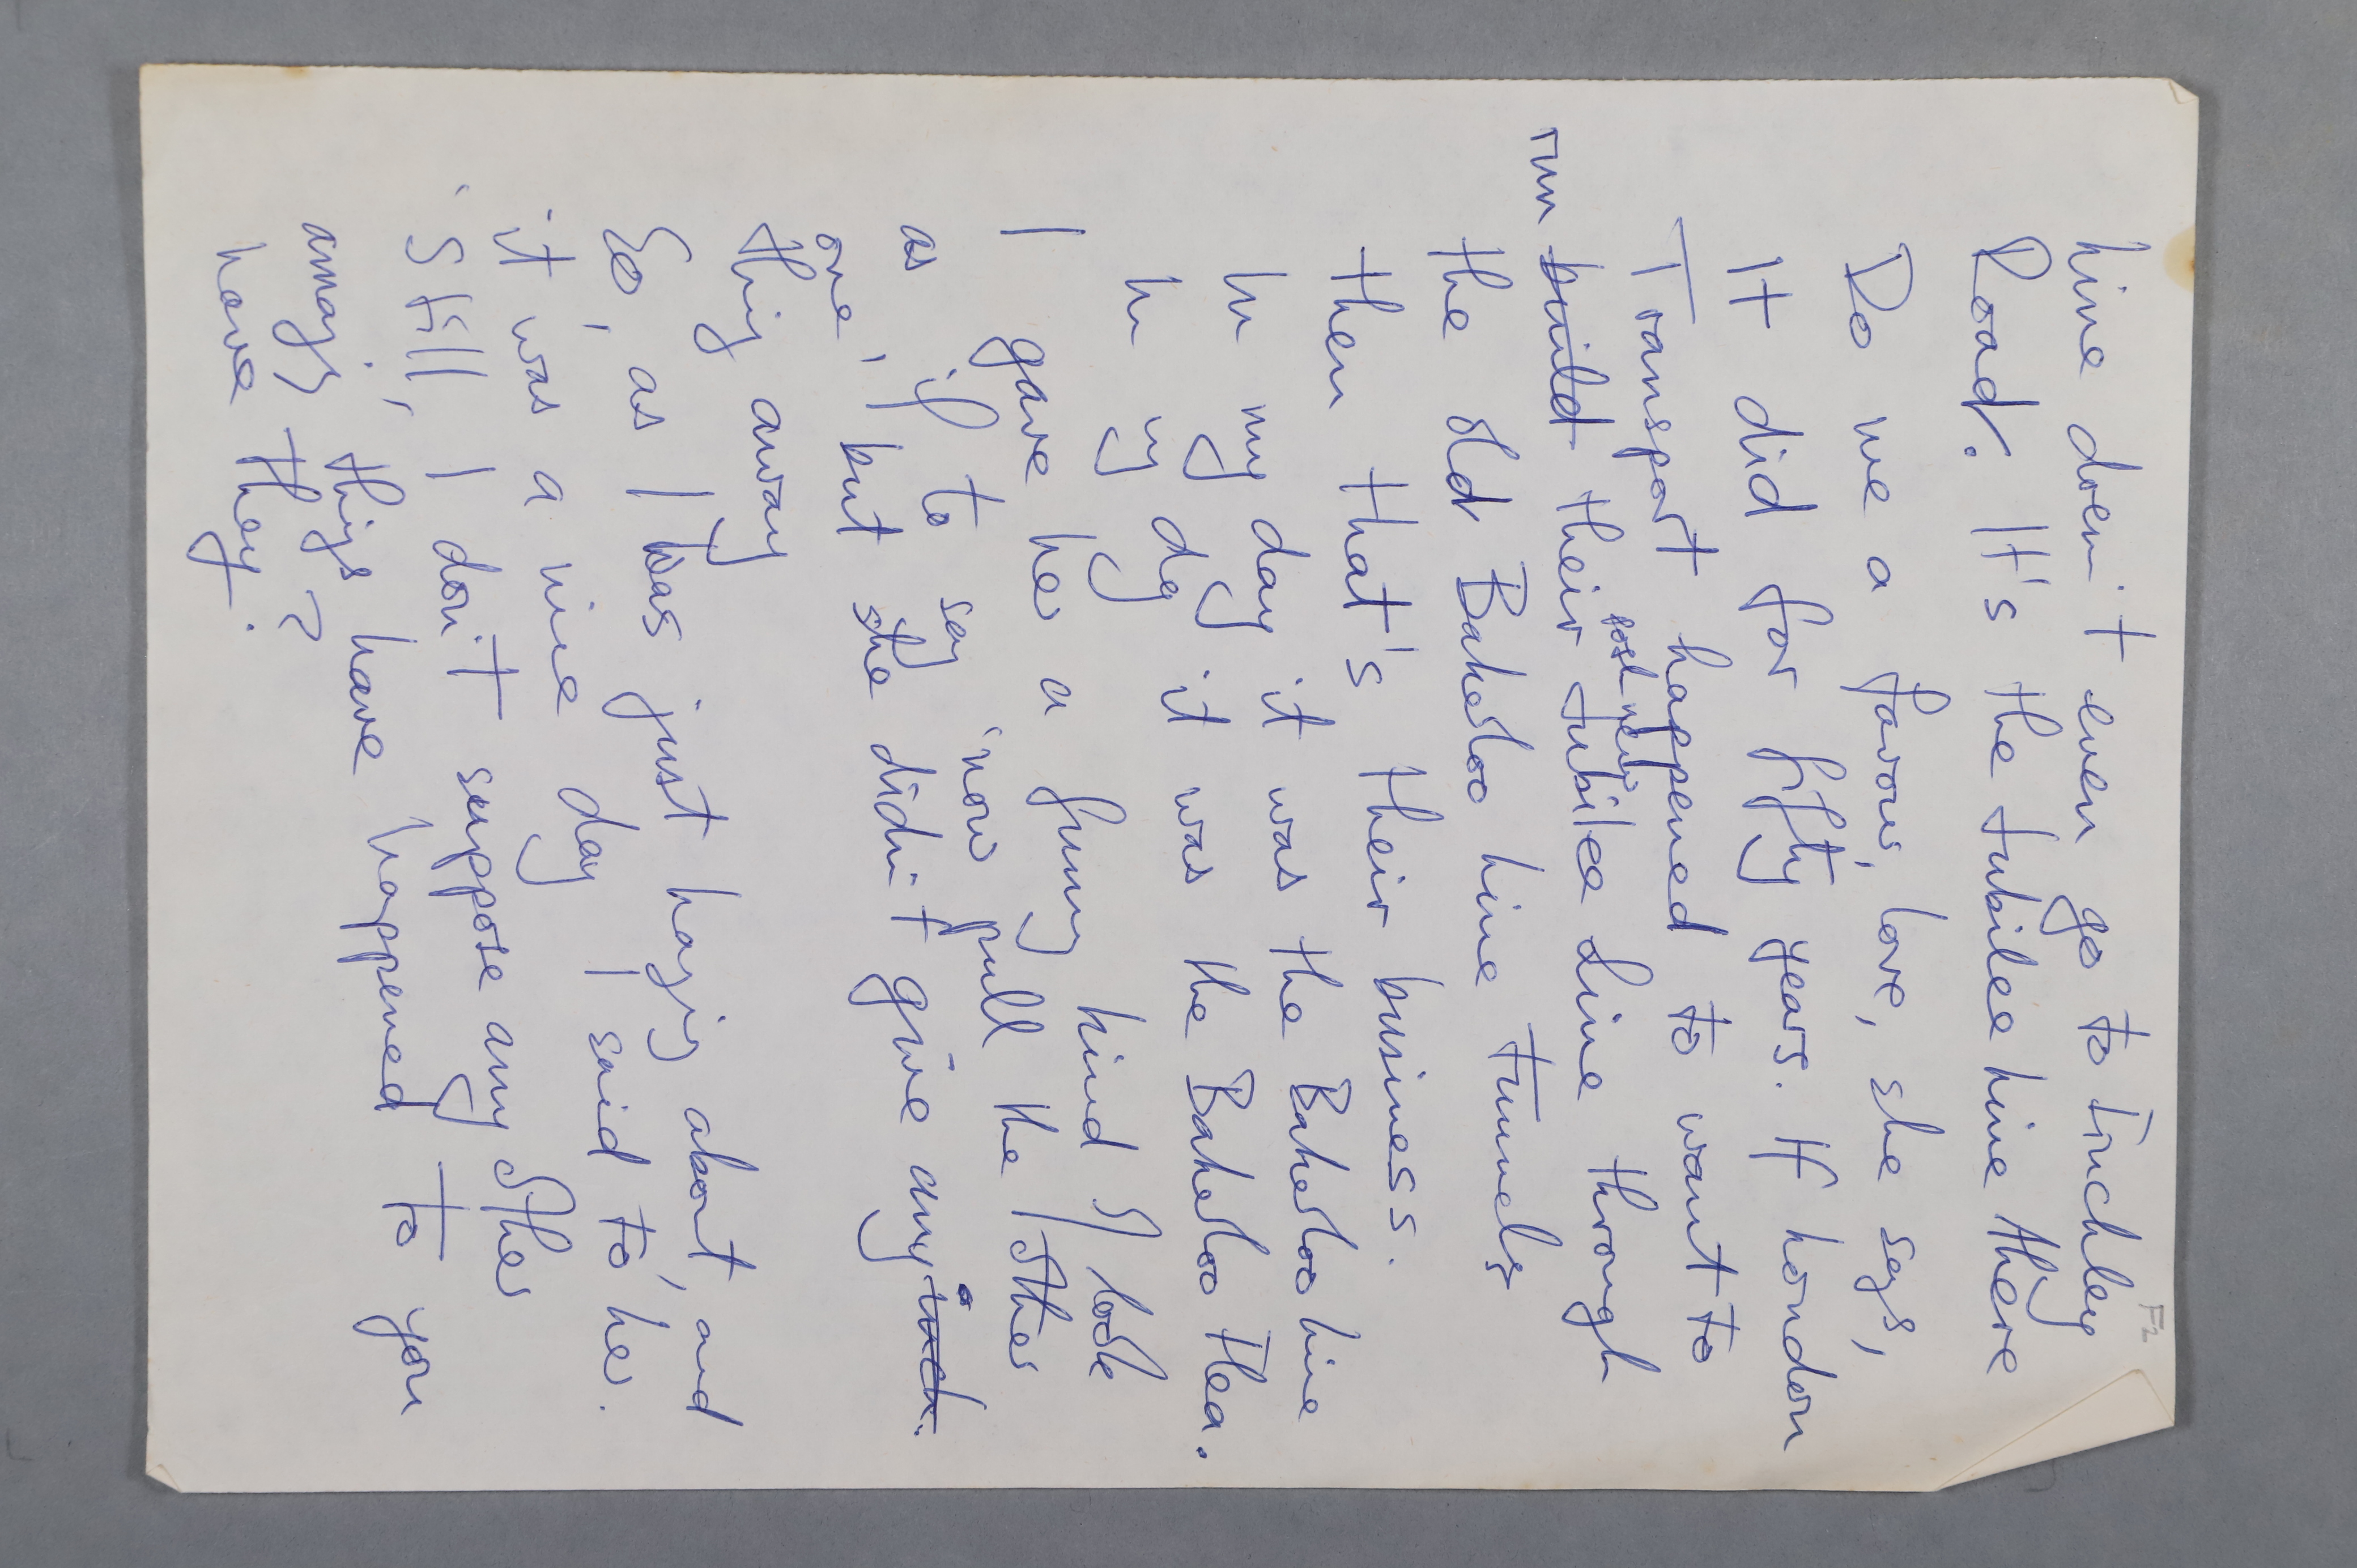 F2
Line doen't even go to Finchley
Road. It's the Jubilee Line there
Do me a favour, love, she says,
It did for fifty years. If London
Transport happened to want to
posh new
run build their Jubilee Line through
the old Bakerloo Line tunnels
then that's their business.
In my day it was the Bakerloo Line
In my day it was the Bakerloo Flea.
I gave her a funny kind of look
as if to say 'now pull the other
one', but she didn't give anything away
So, as I was just hanging about, and
it was a nice day I said to her.
'Still, I don't suppose any other
amazing things have happened to you
have they?